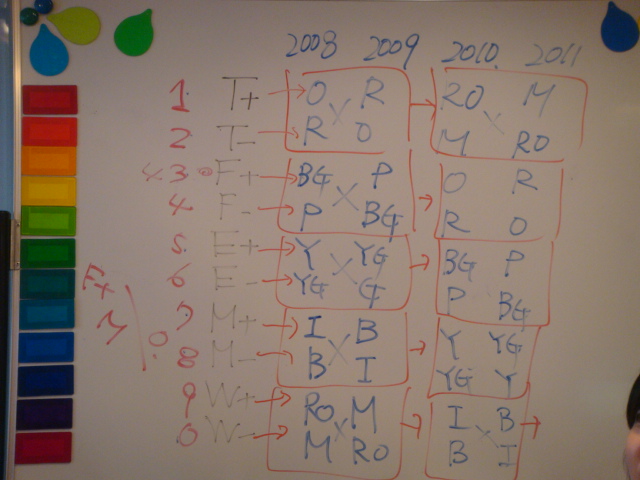 2008 2009 2010 2011
1 T+ O R RO M
2 T- R O M RO
3 F+ BG P O R
4 F- P BG R O
5 E+ Y YG BG P
6 E- YG G P BG
7 M+ I B Y YG
8 M- B I YG Y
9 W+ RO M I B
0 W- M RO B I
M